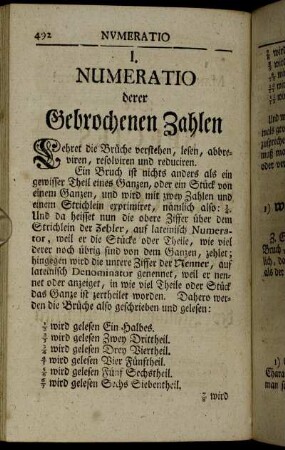 492 NVMERATIO
I.
NUMERATIO
derer
Gebrochenen Zahlen
Lehret die Brüche verstehen, lesen, abbre-
viren, resolviren und reduciren.
Ein Bruch ist nichts anders als ein
gewisser Theil eines Ganzen, oder ein Stück von
einem Ganzen, und wird mit zwey Zahlen und
einem Strichlein exprimiret, nämlich also:
Und da heisset nun die obere Ziffer über dem
Strichlein der Zehler, auf lateinisch Numera-
tor, weil er die Stücke oder Theile, wie viel
derer noch übrig sind von dem Ganzen, zehlet;
hingegen wird die untere Ziffer der Nenner, auf
lateinisch Denominator genennet, weil er nen-
net oder anzeiget, in wie viel Theile oder Stück
das Ganze ist zertheilet worden. Dahero wer-
den die Brüche also geschrieben und gelesen:
½ wird gelesen Ein Halbes.
⅔ wird gelesen Zwey Drittheil.
¾ wird gelesen Drey Viertheil.
⅘ wird gelesen Vier Fünftheil.
⅚ wird gelesen Fünf Sechstheil.
6/7 wird gelesen Sechs Siebentheil.
⅞ wird